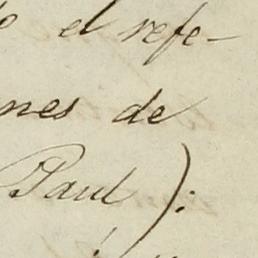 el refe-
nes de
Paul):